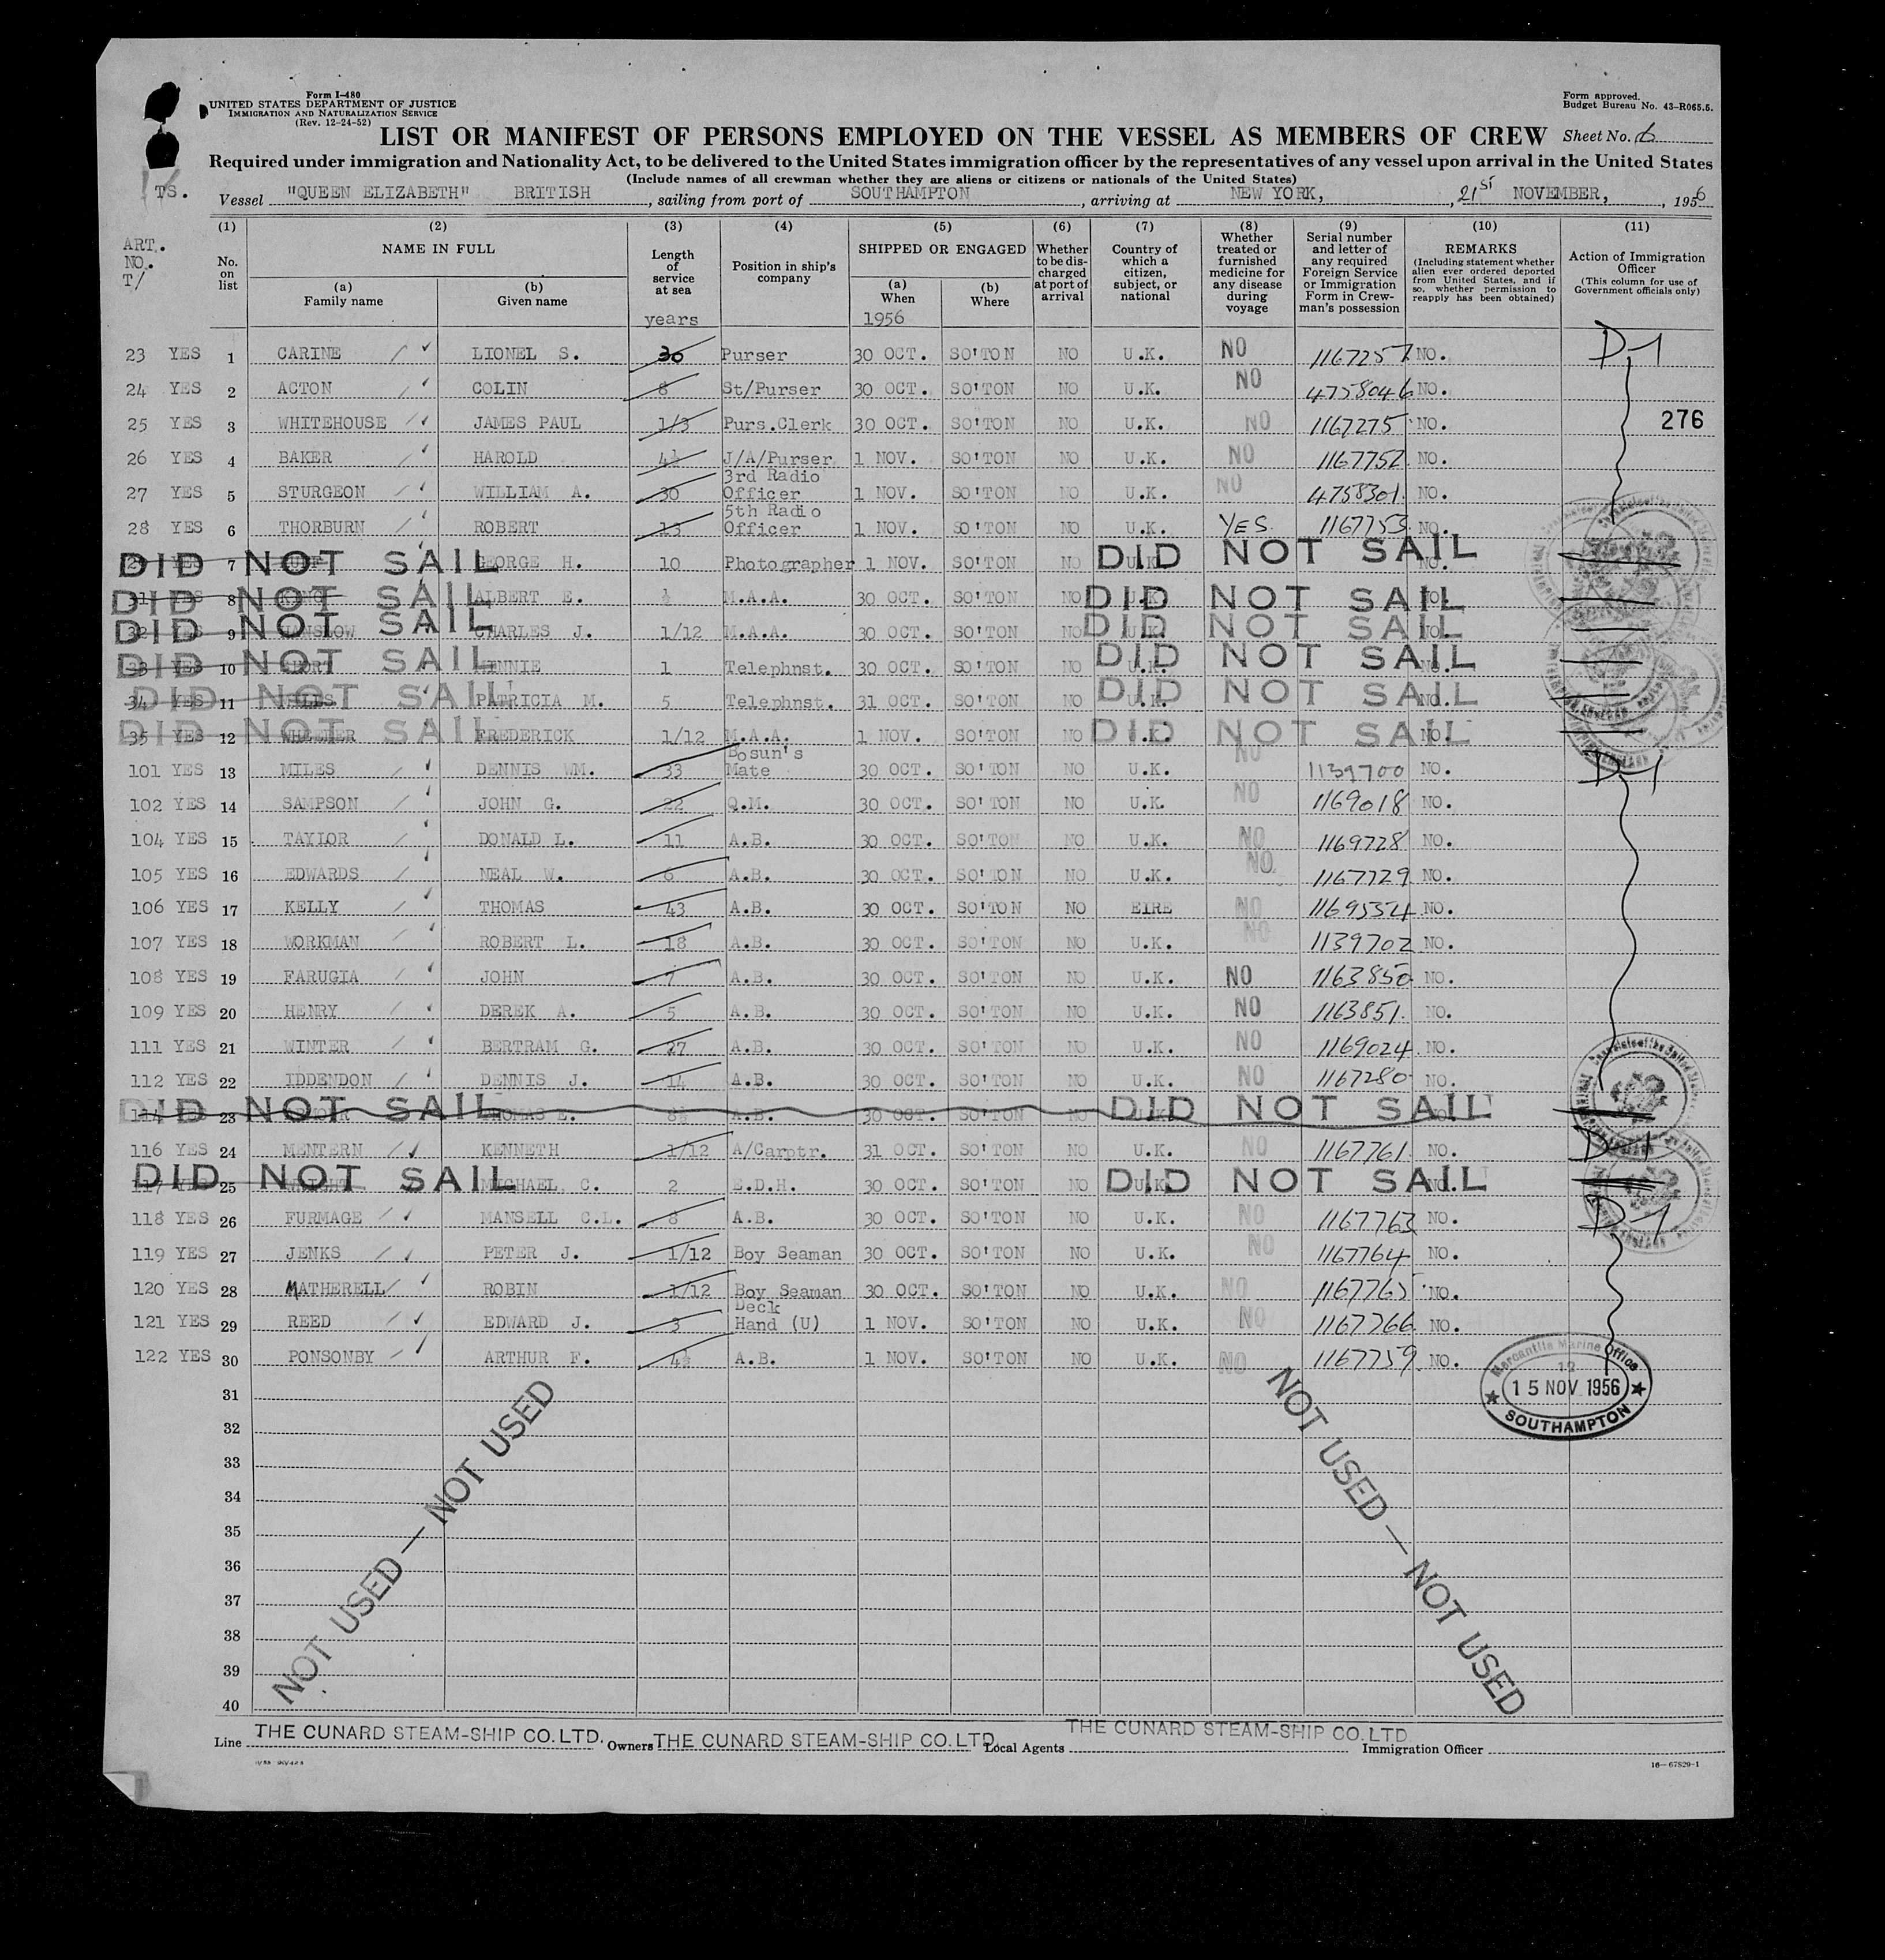 Form I-480
UNITED STATES DEPARTMENT OF JUSTICE
IMMIGRATION AND NATURALIZATION SERVICE
(Rev. 12-24-52)
Form approved.
Budget Bureau No. 43-R065.5.
LIST OR MANIFEST OF PERSONS EMPLOYED ON THE VESSEL AS MEMBERS OF CREW Sheet No. 6
Required under immigration and Nationality Act, to be delivered to the United States immigration officer by the representatives of any vessel upon arrival in the United States
(Include names of all crewman whether they are aliens or citizens or nationals of the United States)
TS. Vessel "QUEEN ELIZABETH" BRITISH, sailing from port of SOUTHAMPTON, arriving at NEW YORK, 21ST NOVEMBER, 1956
ART. NO. T/
(1) No. on list
(2) NAME IN FULL (a) Family name (b) Given name
(3) Length of service at sea years
(4) Position in ship's company
(5) SHIPPED OR ENGAGED (a) When 1956 (b) Where
(6) Whether to be discharged at port of arrival
(7) Country of which a citizen, subject, or national
(8) Whether treated or furnished medicine for any disease during voyage
(9) Serial number and letter of any required Foreign Service or Immigration Form in Crewman's possession
(10) REMARKS (Including statement whether alien ever ordered deported from United States, and if so, whether permission to reapply has been obtained)
(11) Action of Immigration Officer (This column for use of Government officials only)
23 YES 1 CARINE LIONEL S. 30 Purser 30 OCT. SO'TON NO U.K. NO 1167257 NO. D-1
24 YES 2 ACTON COLIN 8 St/Purser 30 OCT. SO'TON NO U.K. NO 4758046 NO.
25 YES 3 WHITEHOUSE JAMES PAUL 1/3 Purs.Clerk 30 OCT. SO'TON NO U.K. NO 1167275 NO. 276
26 YES 4 BAKER HAROLD 4½ J/A/Purser 1 NOV. SO'TON NO U.K. NO 1167752 NO.
27 YES 5 STURGEON WILLIAM A. 30 3rd Radio Officer 1 NOV. SO'TON NO U.K. NO 4758301 NO.
28 YES 6 THORBURN ROBERT 13 5th Radio Officer 1 NOV. SO'TON NO U.K. YES 1167753 NO.
DID NOT SAIL 7 GEORGE H. 10 Photographer 1 NOV. SO'TON NO U.K. DID NOT SAIL NO.
DID NOT SAIL 31 YES 8 KING ALBERT E. ½ M.A.A. 30 OCT. SO'TON NO U.K. DID NOT SAIL NO.
DID NOT SAIL 32 YES 9 CHARLES J. 1/12 M.A.A. 30 OCT. SO'TON NO U.K. DID NOT SAIL NO.
DID NOT SAIL 33 YES 10 1 Telephnst. 30 OCT. SO'TON NO U.K. DID NOT SAIL NO.
DID NOT SAIL 34 YES 11 PATRICIA M. 5 Telephnst. 31 OCT. SO'TON NO U.K. DID NOT SAIL NO.
DID NOT SAIL 35 YES 12 WHEELER FREDERICK 1/12 M.A.A. 1 NOV. SO'TON NO U.K. DID NOT SAIL NO.
101 YES 13 MILES DENNIS WM. 33 Bosun's Mate 30 OCT. SO'TON NO U.K. NO 1139700 NO. D-1
102 YES 14 SAMPSON JOHN G. 22 Q.M. 30 OCT. SO'TON NO U.K. NO 1169018 NO.
104 YES 15 TAYLOR DONALD L. 11 A.B. 30 OCT. SO'TON NO U.K. NO 1169728 NO.
105 YES 16 EDWARDS NEAL W. 6 A.B. 30 OCT. SO'TON NO U.K. NO. 1167729 NO.
106 YES 17 KELLY THOMAS 43 A.B. 30 OCT. SO'TON NO EIRE NO 1169554 NO.
107 YES 18 WORKMAN ROBERT L. 18 A.B. 30 OCT. SO'TON NO U.K. NO 1139702 NO.
108 YES 19 FARUGIA JOHN 7 A.B. 30 OCT. SO'TON NO U.K. NO 1163850 NO.
109 YES 20 HENRY DEREK A. 5 A.B. 30 OCT. SO'TON NO U.K. NO 1163851. NO.
111 YES 21 WINTER BERTRAM G. 27 A.B. 30 OCT. SO'TON NO U.K. NO 1169024 NO.
112 YES 22 IDDENDON DENNIS J. 14 A.B. 30 OCT. SO'TON NO U.K. NO 1167280 NO.
DID NOT SAIL 114 23 THOMAS E. 8½ A.B. 30 OCT. SO'TON NO U.K. DID NOT SAIL
116 YES 24 MENTERN KENNETH 1/12 A/Carptr. 31 OCT. SO'TON NO U.K. NO 1167761 NO. D-1
DID NOT SAIL 117 25 MICHAEL C. 2 E.D.H. 30 OCT. SO'TON NO U.K. DID NOT SAIL NO.
118 YES 26 FURMAGE MANSELL C.L. 8 A.B. 30 OCT. SO'TON NO U.K. NO 1167763 NO. D-1
119 YES 27 JENKS PETER J. 1/12 Boy Seaman 30 OCT. SO'TON NO U.K. NO 1167764 NO.
120 YES 28 MATHERELL ROBIN 1/12 Boy Seaman 30 OCT. SO'TON NO U.K. NO 1167765 NO.
121 YES 29 REED EDWARD J. 3 Deck Hand (U) 1 NOV. SO'TON NO U.K. NO 1167766 NO.
122 YES 30 PONSONBY ARTHUR F. 4½ A.B. 1 NOV. SO'TON NO U.K. NO 1167759 NO.
Mercantile Marine Office
12
15 NOV 1956
SOUTHAMPTON
31
32
33
34
35
36
37
38
39
40
NOT USED — NOT USED
NOT USED — NOT USED
Line THE CUNARD STEAM-SHIP CO. LTD. Owners THE CUNARD STEAM-SHIP CO. LTD. Local Agents THE CUNARD STEAM-SHIP CO. LTD Immigration Officer
16—67829-1